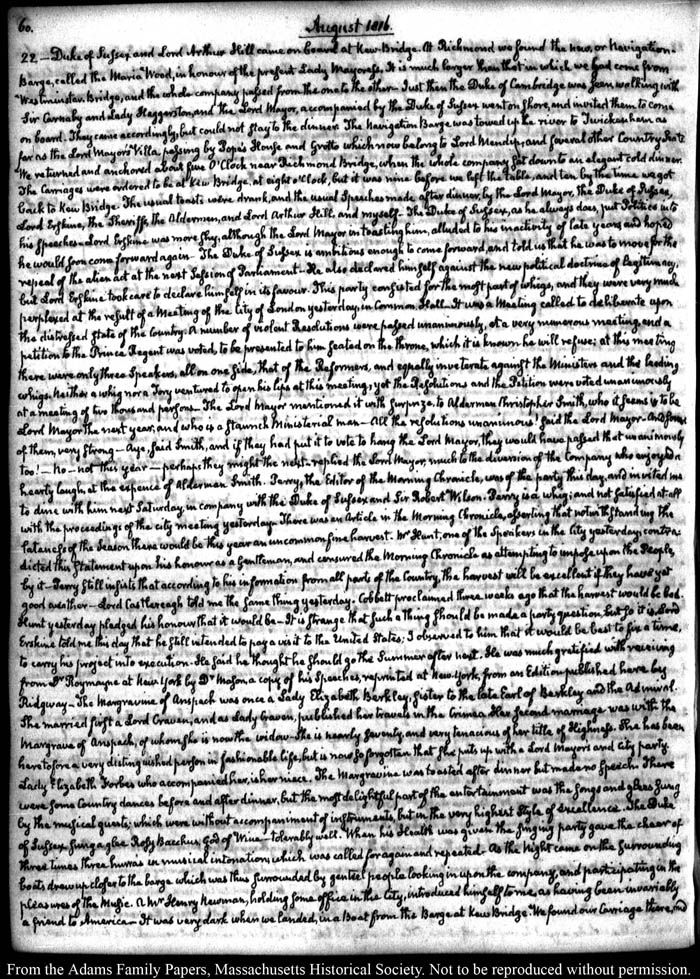 60.
August 1816.
22 — Duke of Sussex and Lord Arthur Hill came on board at Kew-Bridge. At Richmond we found the new, or Navigation
Barge, called the Maria Wood, in honour of the present Lady Mayoress. It is much larger than that in which we had come from
Westminster Bridge, and the whole company passed from the one to the other. Just then the Duke of Cambridge was seen walking with
Sir Carnaby and Lady Haggerston, and the Lord Mayor, accompanied by the Duke of Sussex went on shore, and invited them to come
on board. They came accordingly, but could not stay to the dinner. The Navigation Barge was towed up the river to Twickenham as
far as the Lord Mayor's Villa, passing by Pope's House and Grotto which now belong to Lord Mendip, and several other Country Seats
We returned and anchored about five O'Clock near Richmond Bridge, when the whole company sat down to an elegant cold dinner.
The Carriages were ordered to be at Kew Bridge, at eight o'Clock, but it was nine before we left the table, and ten by the time we got
back to Kew Bridge. The usual toasts were drank, and the usual Speeches made after dinner, by the Lord Mayor, the Duke of Sussex,
Lord Erskine, the Sheriffs, the Aldermen, and Lord Arthur Hill, and myself. The Duke of Sussex, as he always does, put Politics into
his speeches — Lord Erskine was more shy, although the Lord Mayor in toasting him, alluded to his inactivity of late years and hoped
he would soon come forward again — The Duke of Sussex is ambitious enough to come forward, and told us that he was to move for the
repeal of the alien act at the next Session of Parliament. He also declared himself against the new political doctrine of Legitimacy,
but Lord Erskine took care to declare himself in its favour. This party consisted for the most part of whigs, and they were very much
perplexed at the result of a Meeting of the City of London yesterday, in Common Hall. It was a Meeting called to deliberate upon
the distressed State of the Country. A number of violent Resolutions were passed unanimously, at a very numerous meeting, and a
petition to the Prince Regent was voted, to be presented to him seated on the throne, which it is known he will refuse; at this meeting
there were only three Speakers, all on one side, that of the Reformers, and equally inveterate against the Ministers and the leading
whigs. Neither a whig nor a Tory ventured to open his lips at this meeting; yet the Resolutions and the Petition were voted unanimously
at a meeting of two thousand persons. The Lord Mayor mentioned it with surprize to Alderman Christopher Smith, who it seems is to be
Lord Mayor the next year, and who is a staunch Ministerial man — All the resolutions unanimous! said the Lord Mayor — And some
of them, very strong — Aye, said Smith, and if they had put it to vote to hang the Lord Mayor, they would have passed that unanimously
too! — No — not this year — perhaps they might the next — replied the Lord Mayor, much to the diversion of the Company who enjoyed a
hearty laugh, at the expence of Alderman Smith. Perry, the Editor of the Morning Chronicle, was of the party this day, and invited me
to dine with him next Saturday, in company with the Duke of Sussex and Sir Robert Wilson. Perry is a whig; and not satisfied at all
with the proceedings of the city meeting yesterday. There was an Article in the Morning Chronicle, asserting that notwithstanding the
lateness of the Season there would be this year an uncommon fine harvest. Mr Hunt, one of the Speakers in the City yesterday, contra-
dicted this Statement upon his honour as a Gentleman, and censured the Morning Chronicle as attempting to impose upon the People,
by it — Perry still insists that according to his information from all parts of the Country, the harvest will be excellent if they have yet
good weather — Lord Castlereagh told me the same thing yesterday. Cobbett proclaimed three weeks ago that the harvest would be bad.
Hunt yesterday pledged his honour that it would be — It is strange that such a thing should be made a party question, but so it is. Lord
Erskine told me this day that he still intended to pay a visit to the United States; I observed to him that it would be best to fix a time,
to carry his project into execution. He said he thought he should go the Summer after next. He was much gratified with receiving
from Dr Romayne at New York by Dr Mason a copy of his Speeches, reprinted at New-York, from an Edition published here by
Ridgway — The Margravine of Anspach was once a Lady Elizabeth Berkley, sister to the late Earl of Berkley and the Admiral.
She married first a Lord Craven, and as Lady Craven, published her travels in the Crimea. Her second marriage was with the
Margrave of Anspach, of whom she is now the widow. She is nearly seventy, and very tenacious of her title of Highness. She has been
heretofore a very distinguished person in fashionable life, but is now so forgotten that she puts up with a Lord Mayors and city party.
Lady Elizabeth Forbes who accompanied her, is her niece. The Margravine was toasted after dinner but made no speech. There
were some Country dances before and after dinner, but the most delightful part of the entertainment was the Songs and glees sung
by the musical guests; which were without accompaniment of instruments, but in the very highest Style of excellence. The Duke
of Sussex sung a glee Rosy Bacchus, God of Wine — tolerably well. When his Health was given the singing party gave the cheer of
three times three hurras in musical intonation; which was called for again and repeated. As the night came on the surrounding
boats drew up closer to the barge which was thus surrounded by genteel people looking in upon the company, and participating in the
pleasures of the Music. A Mr Henry Newman, holding some office in the City, introduced himself to me, as having been invariably
a friend to America — It was very dark when we landed, in a Boat from the Barge at Kew Bridge. We found our Carriage there, and
From the Adams Family Papers, Massachusetts Historical Society. Not to be reproduced without permission.